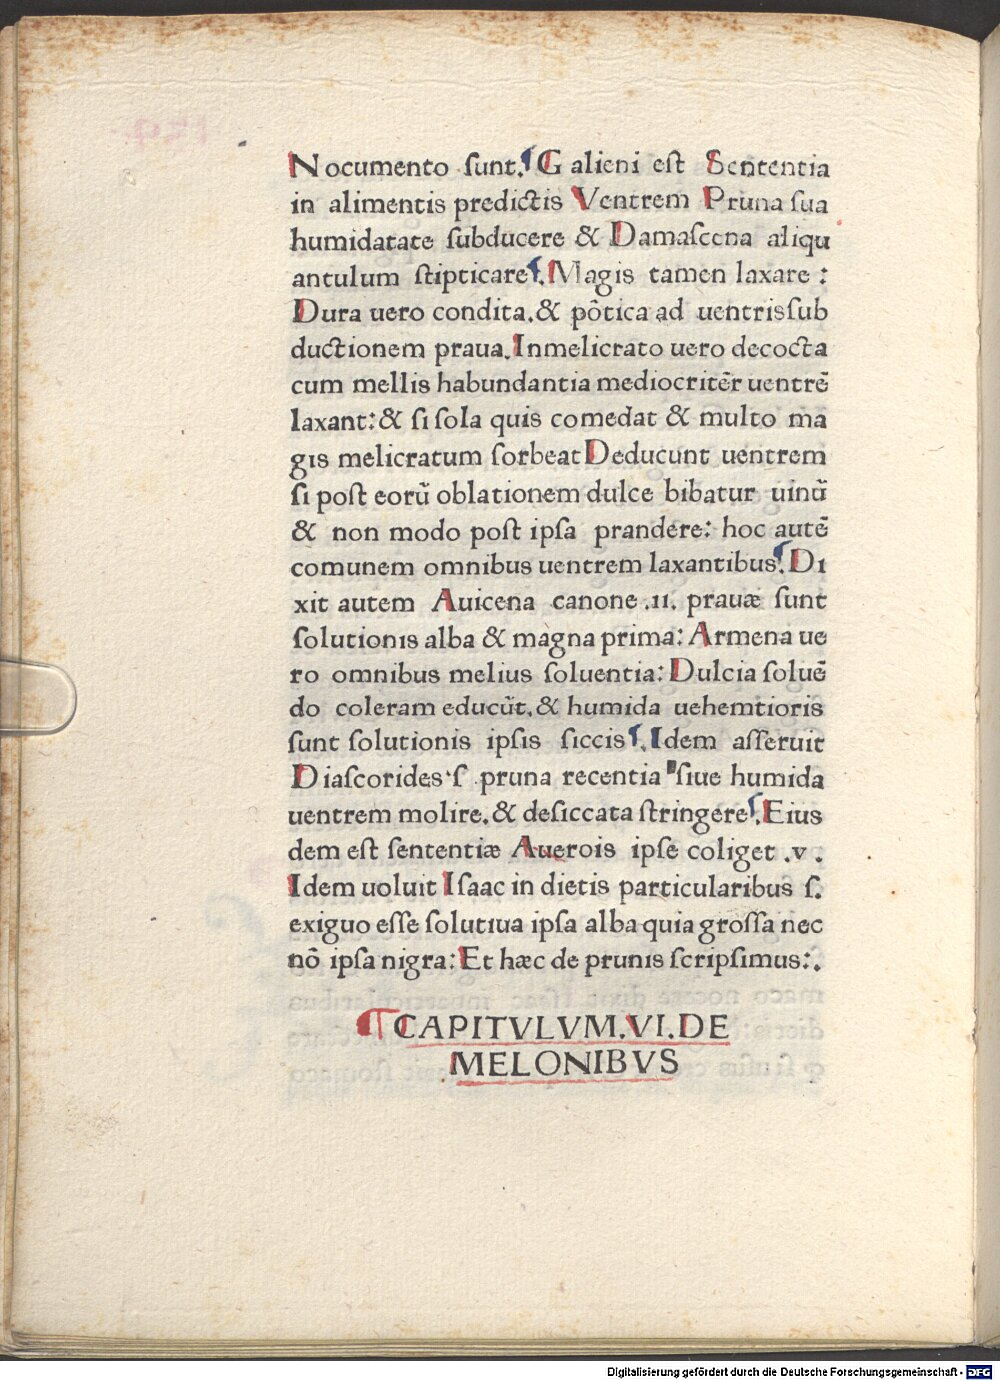 Nocumento sunt.¶Galieni est Sententia
in alimentis predictis Ventrem Pruna sua
humidatate subducere & Damascena aliqu
antulum stipticare¶.Magis tamen laxare :
Dura uero condita.& põtica ad uentris sub
ductionem praua.Inmelicrato uero decocta
cum mellis habundantia mediocritēr uentrē
laxant:& si sola quis comedat & multo ma
gis melicratum sorbeat Deducunt uentrem
si post eorū oblationem dulce bibatur uinū
& non modo post ipsa prandere: hoc autē
comunem omnibus uentrem laxantibus¶.Di
xit autem Auicena canone .11. prauæ sunt
solutionis alba & magna prima: Armena ue
ro omnibus melius soluentia: Dulcia soluē
do coleram educūt.& humida uehemtioris
sunt solutionis ipsis siccis¶.Idem asseruit
Diascorides s pruna recentia siue humida
uentrem molire.& desiccata stringere¶.Eius
dem est sententiæ Auerois ipse coliget .v .
Idem uoluit Isaac in dietis particularibus s.
exiguo esse solutiua ipsa alba quia grossa nec
nõ ipsa nigra: Et hæc de prunis scripsimus:.
¶ CAPITVLVM.VI.DE
MELONIBVS
Digitalisierung gefördert durch die Deutsche Forschungsgemeinschaft - DFG